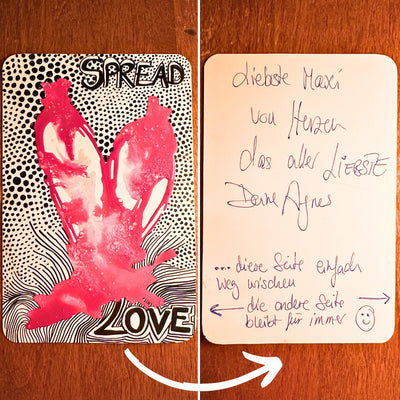 SPREAD
LOVE
liebste Maxi
von Herzen
das aller LIEBSTE
Deine Agnes
... diese Seite einfach
weg wischen
die andere Seite
bleibt für immer